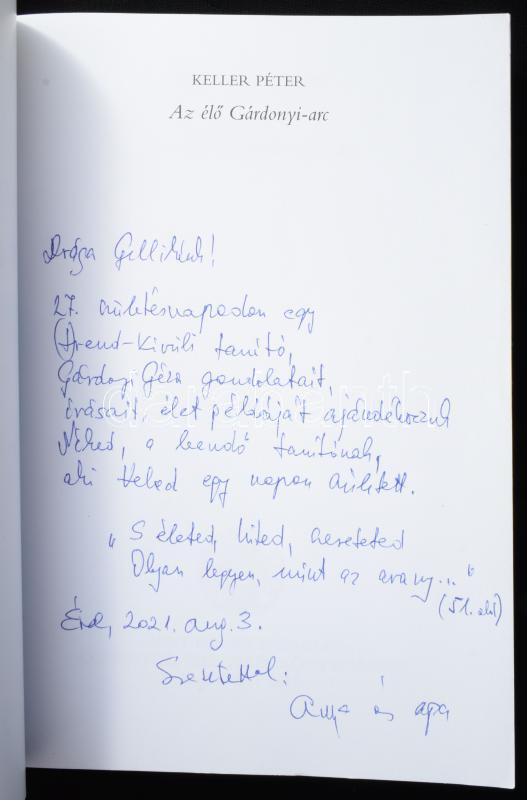 KELLER PÉTER
Az élő Gárdonyi-arc
Drága Gellikénk!
27. születésnapodon egy
(t)rend-kívüli tanító,
Gárdonyi Géza gondolatait,
írásait, élet példáját ajándékozzuk
Neked, a leendő tanítónak,
aki Veled egy napon született.
„S életed, hited, szereteted
Olyan legyen, mint az arany..."
(51. old)
Érd, 2021. aug. 3.
Szeretettel:
Anya és apa